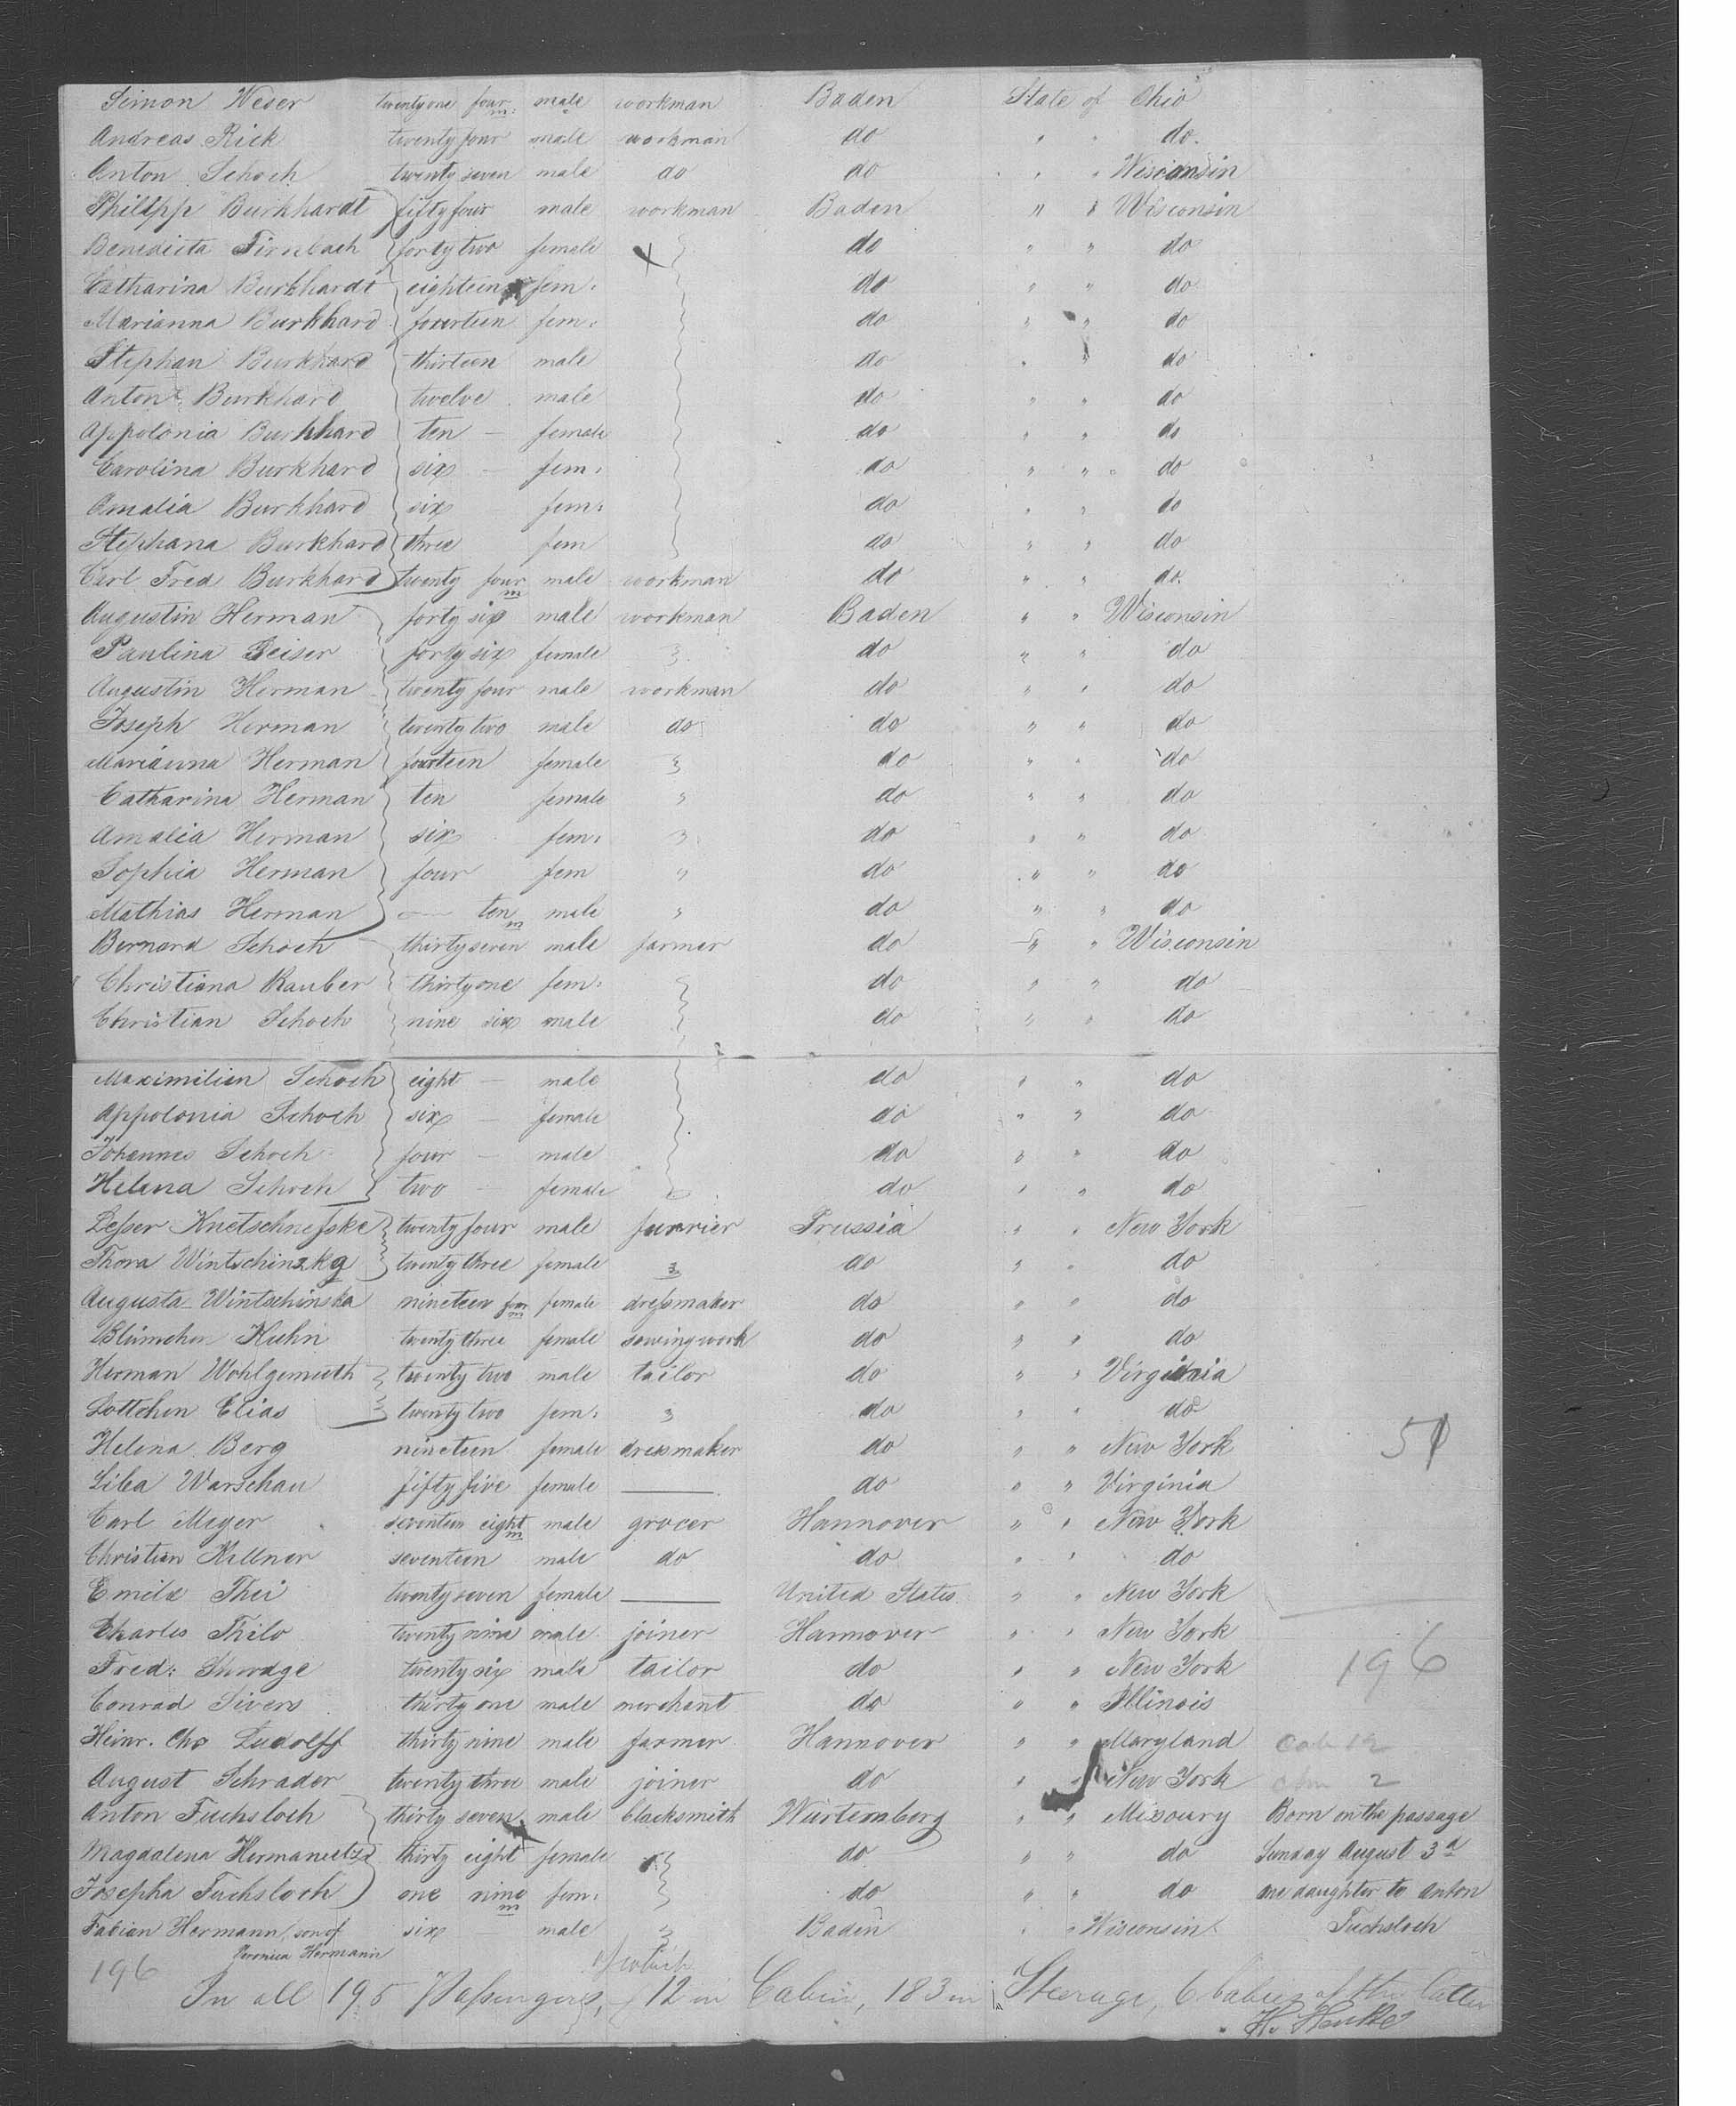 Simon Weser twenty one four m: male workman Baden State of Ohio
Andreas Rick twenty four male workman do " " do.
Anton Schoch twenty seven male do do " " Wisconsin
Philipp Burkhardt fifty four male workman Baden " " Wisconsin
Benedicta Firnbach forty two female do " " do
Catharina Burkhardt eighteen fem: do " " do
Marianna Burkhard fourteen fem: do " " do
Stephan Burkhard thirteen male do " " do
Anton Burkhard twelve male do " " do
Appolonia Burkhard ten — female do " " do
Carolina Burkhard six — fem: do " " do
Amalia Burkhard six fem: do " " do
Stephana Burkhard three fem do " " do
Carl Fred Burkhard twenty four m male workman do " " do.
Augustin Herman forty six male workman Baden " " Wisconsin
Paulina Geiser forty six female do " " do
Augustin Herman twenty four male workman do " " do
Joseph Herman twenty two male do do " " do
Marianna Herman fourteen female do " " do
Catharina Herman ten female " do " " do
Amalia Herman six fem: " do " " do
Sophia Herman four fem " do " " do
Mathias Herman — ten m male " do " " do
Bernard Schoch thirty seven male farmer do " " Wisconsin
Christiana Rauber thirty one fem: do " " do
Christian Schoch nine six male do " " do
Maximilian Schoch eight — male do " " do
Appolonia Schoch six — female do " " do
Johannes Schoch four — male do " " do
Helena Schoch two — female do " " do
Lesser Knetschnefske twenty four male furrier Prussia " " New York
Thora Wintschinskg twenty three female do " " do
Augusta Wintschinska nineteen four m female dressmaker do " " do
Blümchen Kuhn twenty three female sewingwork do " " do
Herman Wohlgemuth twenty two male tailor do " " Virginia
Lottchen Elias twenty two fem: do " " do
Helena Berg nineteen female dressmaker do " " New York 51
Liba Warschau fifty five female — do " " Virginia
Carl Meyer seventeen eight m male grocer Hannover " " New York
Christian Kellner seventeen male do do " " do
Emile Thei twenty seven female — United States " " New York
Charles Thilo twenty nine male joiner Hannover " " New York
Fred: twenty six male tailor do " " New York 196
Conrad Sivers thirty one male merchant do " " Illinois
Heinr. Chr Ludolff thirty nine male farmer Hannover " " Maryland Cab 12
August Schrader twenty three male joiner do " " New York 2
Anton Fuchsloch thirty seven male blacksmith Würtemberg " " Missoury Born on the passage
Magdalena thirty eight female do " " do Sunday August 3d
Josepha Fuchsloch one nine m fem: do " " do one daughter to Anton
Fabian Hermann, son of six male " Baden " " Wisconsin Fuchsloch
Veronica Hermann
196 of which
In all 195 Passengers, 12 in Cabin, 183 in Steerage, 6 babies of the latter
H.